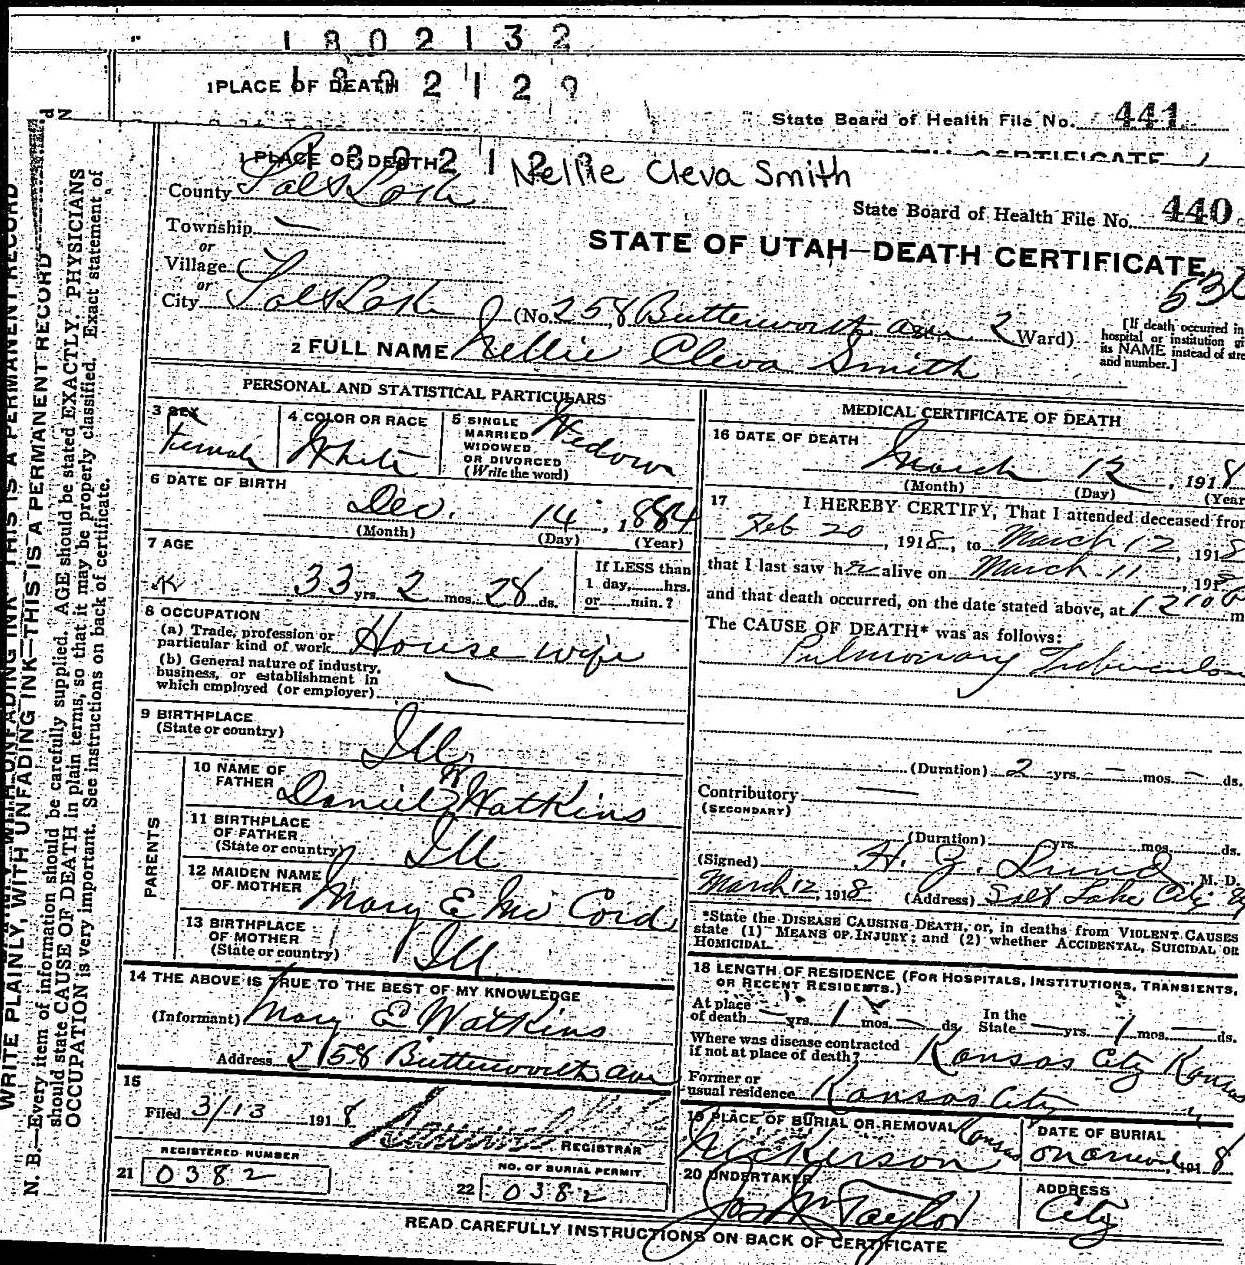 1802132
1 PLACE OF DEATH
State Board of Health File No. 441
1 PLACE OF DEATH
Nellie Cleva Smith
County Salt Lake
State Board of Health File No. 440
Township —
or
STATE OF UTAH—DEATH CERTIFICATE
Village
or
City Salt Lake (No. 258 Butterworth ave 2 Ward)
[If death occurred in
hospital or institution
its NAME instead of
and number.]
2 FULL NAME Nellie Cleva Smith
PERSONAL AND STATISTICAL PARTICULARS
3 SEX Female
4 COLOR OR RACE White
5 SINGLE
MARRIED
WIDOWED
OR DIVORCED
(Write the word)
Widow
6 DATE OF BIRTH
Dec. 14, 1884
(Month) (Day) (Year)
7 AGE
33 yrs. 2 mos. 28 ds.
If LESS than
1 day, hrs.
or min.?
8 OCCUPATION
(a) Trade, profession or
particular kind of work House wife
(b) General nature of industry,
business, or establishment in
which employed (or employer) —
9 BIRTHPLACE
(State or country) Ill
PARENTS
10 NAME OF
FATHER Daniel Watkins
11 BIRTHPLACE
OF FATHER
(State or country) Ill
12 MAIDEN NAME
OF MOTHER Mary E Mc Cord
13 BIRTHPLACE
OF MOTHER
(State or country) Ill
14 THE ABOVE IS TRUE TO THE BEST OF MY KNOWLEDGE
(Informant) Mary E Watkins
Address 258 Butterworth ave
15
Filed 3/13 1918
REGISTRAR
REGISTERED NUMBER
21 0382
NO. OF BURIAL PERMIT.
22 0382
MEDICAL CERTIFICATE OF DEATH
16 DATE OF DEATH
March 12, 1918
(Month) (Day) (Year
17 I HEREBY CERTIFY, That I attended deceased from
Feb 20, 1918, to March 12, 1918
that I last saw her alive on March 11, 1918
and that death occurred, on the date stated above, at 1210 P m
The CAUSE OF DEATH* was as follows:
Pulmonary Tuberculosis
(Duration) 2 yrs. — mos. — ds.
Contributory —
(SECONDARY)
(Duration) yrs. mos. ds.
(Signed) H. Z. Lund, M. D.
March 12, 1918 (Address) Salt Lake City
*State the DISEASE CAUSING DEATH, or, in deaths from VIOLENT CAUSES
state (1) MEANS OF INJURY; and (2) whether ACCIDENTAL, SUICIDAL OR
HOMICIDAL.
18 LENGTH OF RESIDENCE (FOR HOSPITALS, INSTITUTIONS, TRANSIENTS,
OR RECENT RESIDENTS.)
At place
of death — yrs. 1 mos. — ds.
In the
State — yrs. 1 mos. — ds.
Where was disease contracted
if not at place of death? Kansas City Kansas
Former or
usual residence Kansas City "
19 PLACE OF BURIAL OR REMOVAL
Nickerson Kansas
DATE OF BURIAL
on arrival 1918
20 UNDERTAKER
Jos Wm Taylor
ADDRESS
City
READ CAREFULLY INSTRUCTIONS ON BACK OF CERTIFICATE
WRITE PLAINLY, WITH UNFADING INK—THIS IS A PERMANENT RECORD
N. B.—Every item of information should be carefully supplied. AGE should be stated EXACTLY. PHYSICIANS
should state CAUSE OF DEATH in plain terms, so that it may be properly classified. Exact statement of
OCCUPATION is very important. See instructions on back of certificate.